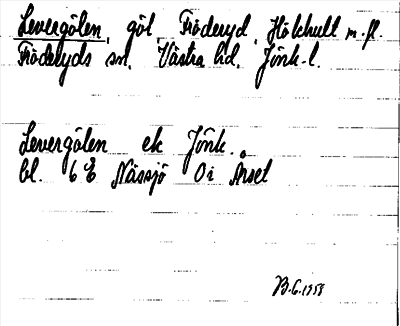 Levergölen, göl, Fröderyd, Hökhult m.fl.
Fröderyds sn. Västra hd. Jönk. l.
Levergölen ek Jönk.
bl. 6 E Nässjö 0i Årset
B.G. 1958